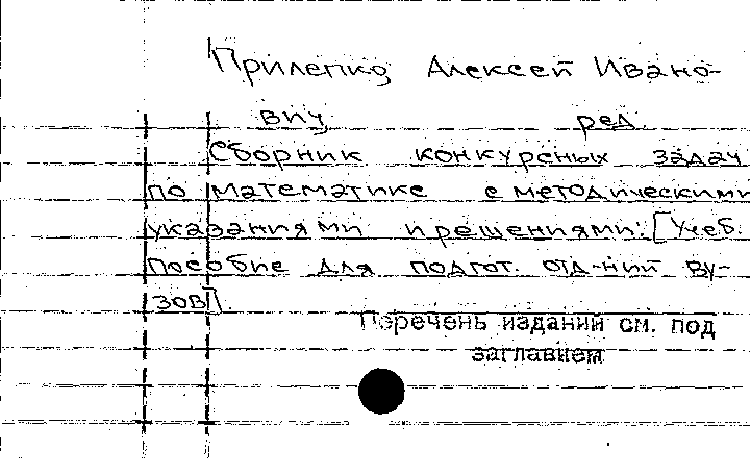 Прилепко, Алексей Ивано-
вич, ред.
Сборник конкурсных задач
по математике с методическими
указаниями и решениями: [Учеб.
пособие для подгот. отд-ний ву-
зов].
Перечень изданий см. под
заглавием